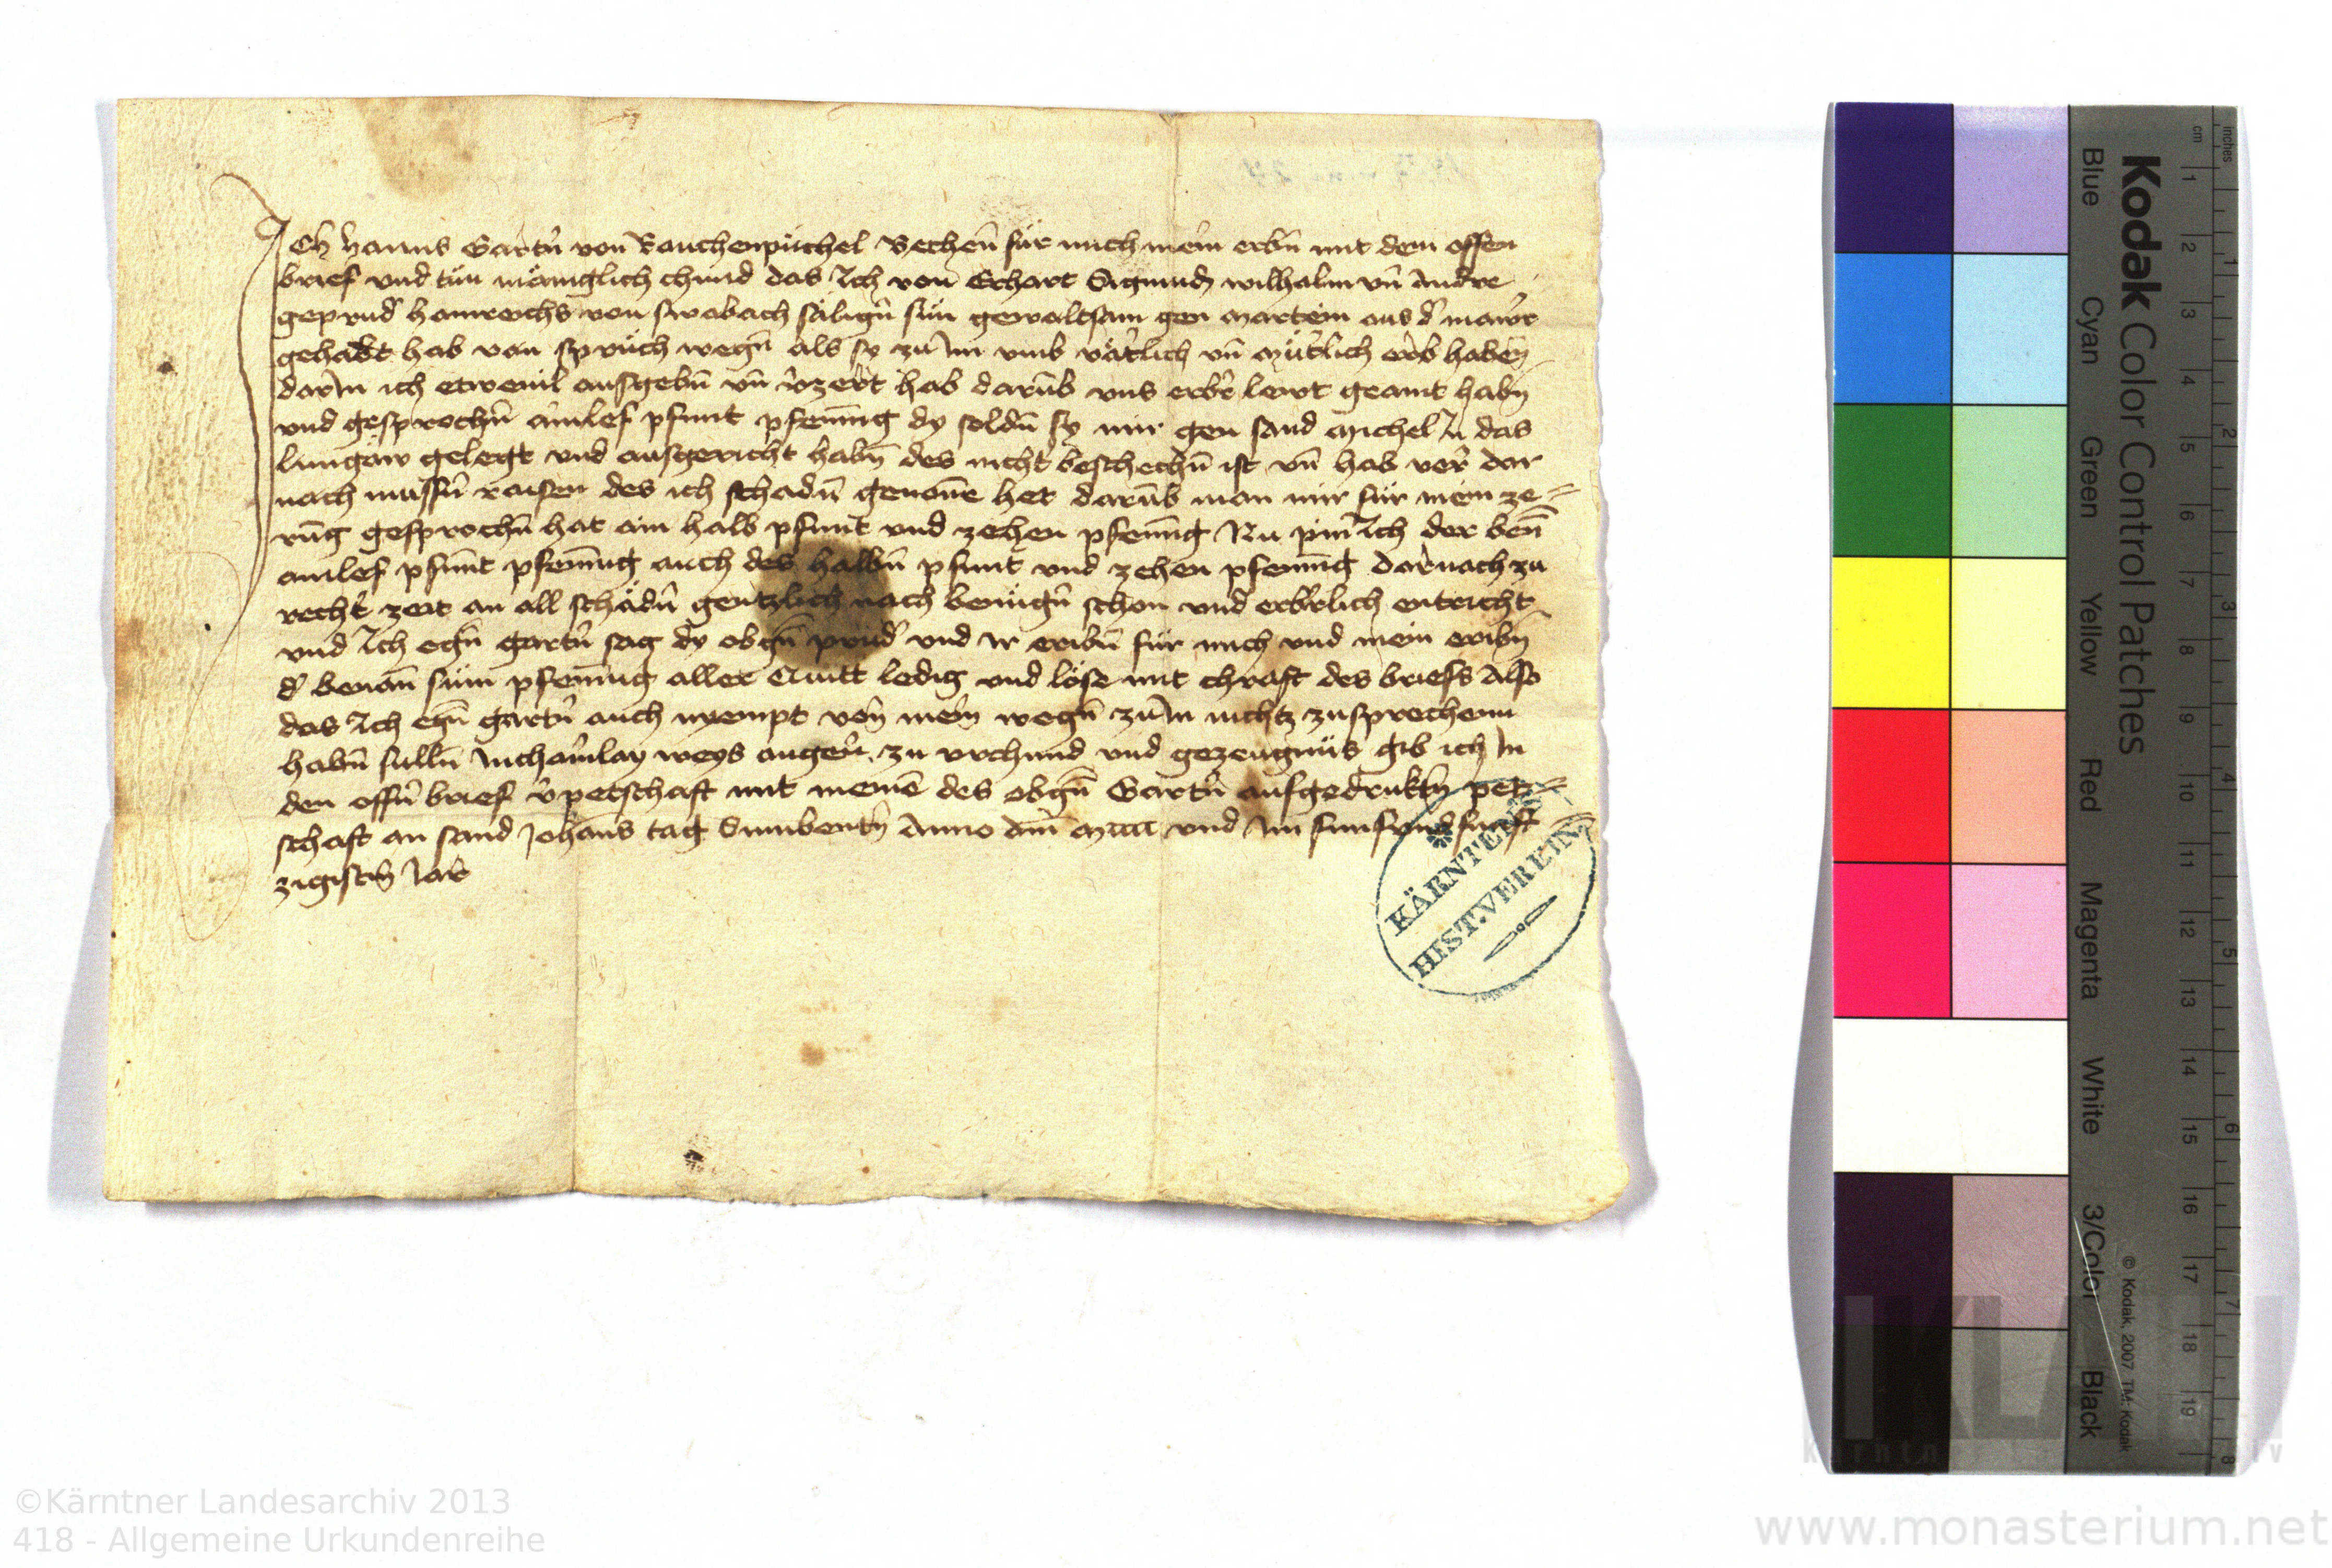 Ich Hanns Gartn̄ von Rauchenpüchel Bechen̄ für mich mein erbn̄ mit dem offen
brief vnd tün mänigklich chund das Ich von Erhart Sigmund wilhalm vn̄ Andre
geprud̉ hainreichs von swabach sälign̄ sün gewaltsam gen Martein aus d̉ mawr̉
gehabt hab von sprüch wegn̄ als sy zu Im vmb vät̉lich vn̄ müt̉lich erb haben
darIn ich etwevil ausgebn̄ vn̄ v̉zert hab darūb vns erbr̉ lewt geaint habn̄
vnd gesprochn̄ aīnlef pfunt pfennīg dy soldn̄ sy mir gen sand Michel In das
lungaw gelegt vnd ausgericht habn̄ des nicht beschechn̄ ist vn̄ hab ver̉ dar
nach mussn̄ raisen des ich schadn̄ genōme het darūb man mir für mein ze=
rūng gesprochn̄ hat ain halb pfunt vnd zehen pfennīg Nu pin Ich der ben̄
ainlef pfūnt pfennīg auch des halbn̄ pfunt vnd zehen pfennīg darnach zu
recht̉ zeit an all schädn̄ gentzlich nach benügn̄ schon vnd erbr̉lich entricht
vnd Ich egn̄ gartn̄ sag dy obgn̄ prüd̉ vnd Ir eribn̄ für mich vnd mein eribn̄
d̉ benan̄ süm pfennīg aller Quitt ledig vnd löse mit chraft des briefs Also
das Ich egn̄ gartn̄ auch nyempt von mein̄ wegn̄ zu In nichtz zusprechenn
habn̄ sulln̄ Inchain̉lay weys angen̉ zu vrchund vnd gezeugnüs gib ich In
den offn̄ brief v̉petschaft mit meinē des obgn̄ Gartn̄ aufgedruktn̄ pet=
schaft an sand Johanns tag Sunibentn̄ Anno dm̄ Mcccc vnd Im funfvndfunf
zigistn̄ Jar
KÄRNTEN
HIST.VEREIN
Kodak Color Control Patches
Blue Cyan Green Yellow Red Magenta White 3/Color Black
© Kodak, 2007 TM: Kodak
cm 1 2 3 4 5 6 7 8 9 10 11 12 13 14 15 16 17 18 19
inches 1 2 3 4 5 6 7 8
©Kärntner Landesarchiv 2013
418 - Allgemeine Urkundenreihe
www.monasterium.net